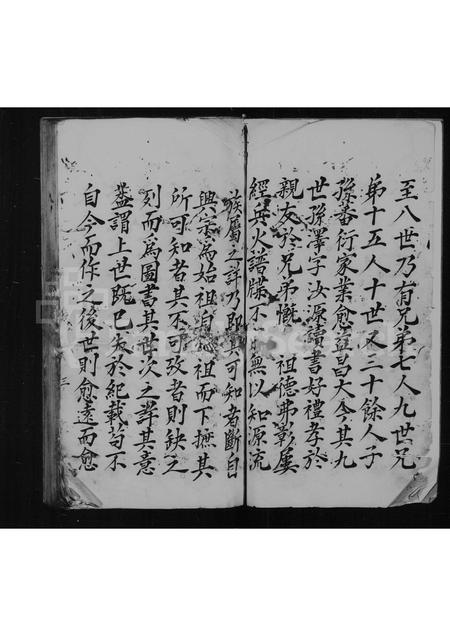 至八世乃有兄弟七人九世兄
弟十五人十世又二十餘人子
孫蕃衍家業愈益昌大今其九
世孫澤字汝源讀書好禮孝於
親友於兄弟慨 祖德弗彰屢
經兵火譜牒不 無以知源流
族屬之詳乃即其可知者斷自
興宗為始祖自始祖而下摭其
所可知者其不可攷者則缺之
刻而為圖書其世次之詳其意
蓋謂上世既已失於紀載苟不
自今而作之後世則愈遠而愈
三